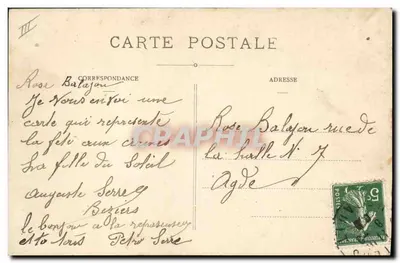 III
CARTE POSTALE
CORRESPONDANCE
ADRESSE
Rose Balajou
Je vous envoi une
carte qui represente
la fête aux arènes
La fille du Soleil
Auguste Serre
Beziers
le bonjour a la
et to
Serre
Rose Balajou rue de
La halle N. 7
Agde
CPARTPHIL
5